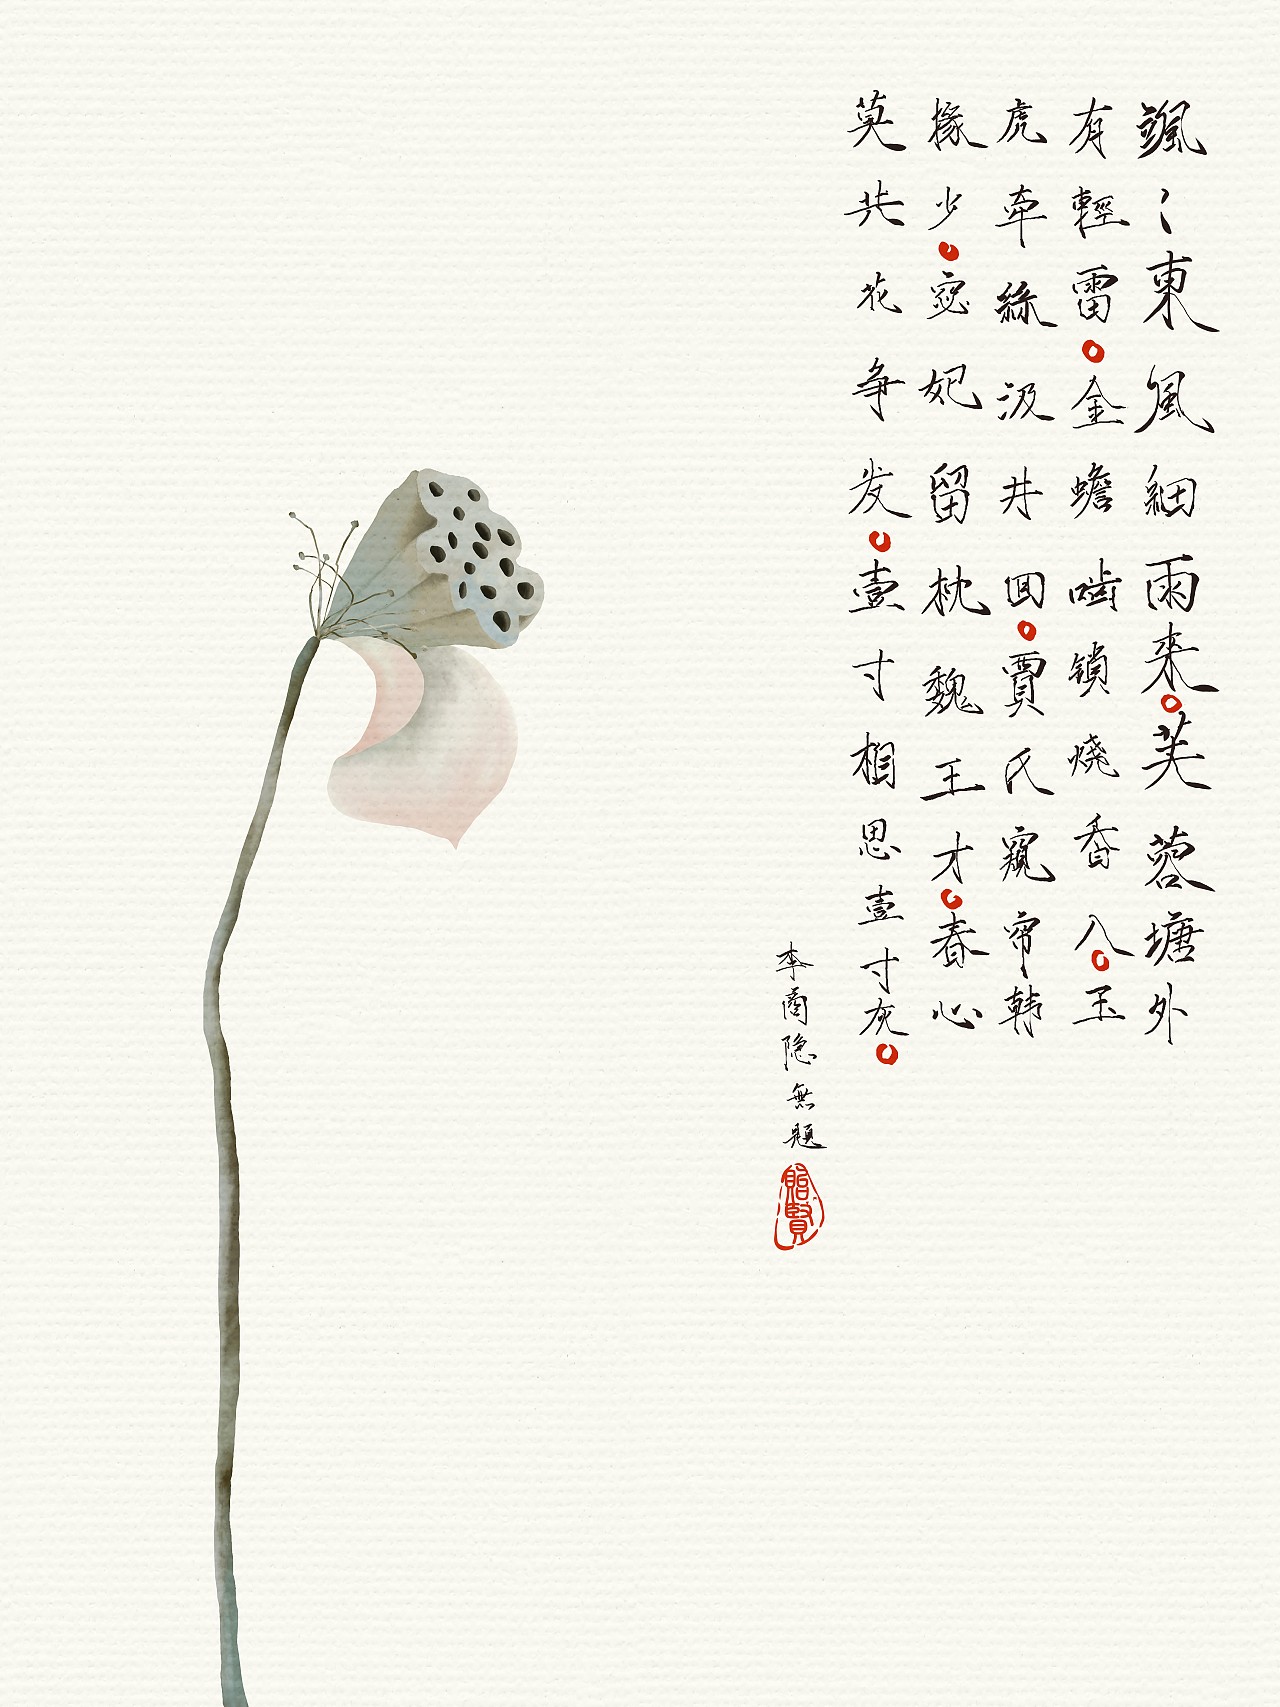 颯〻東風細雨来。芙蓉塘外
有輕雷。金蟾啮锁烧香入。玉
虎牵絲汲井回。賈氏窺帘韩
掾少。宓妃留枕魏王才。春心
莫共花争发。壹寸相思壹寸灰。
李商隐無題
貽賢